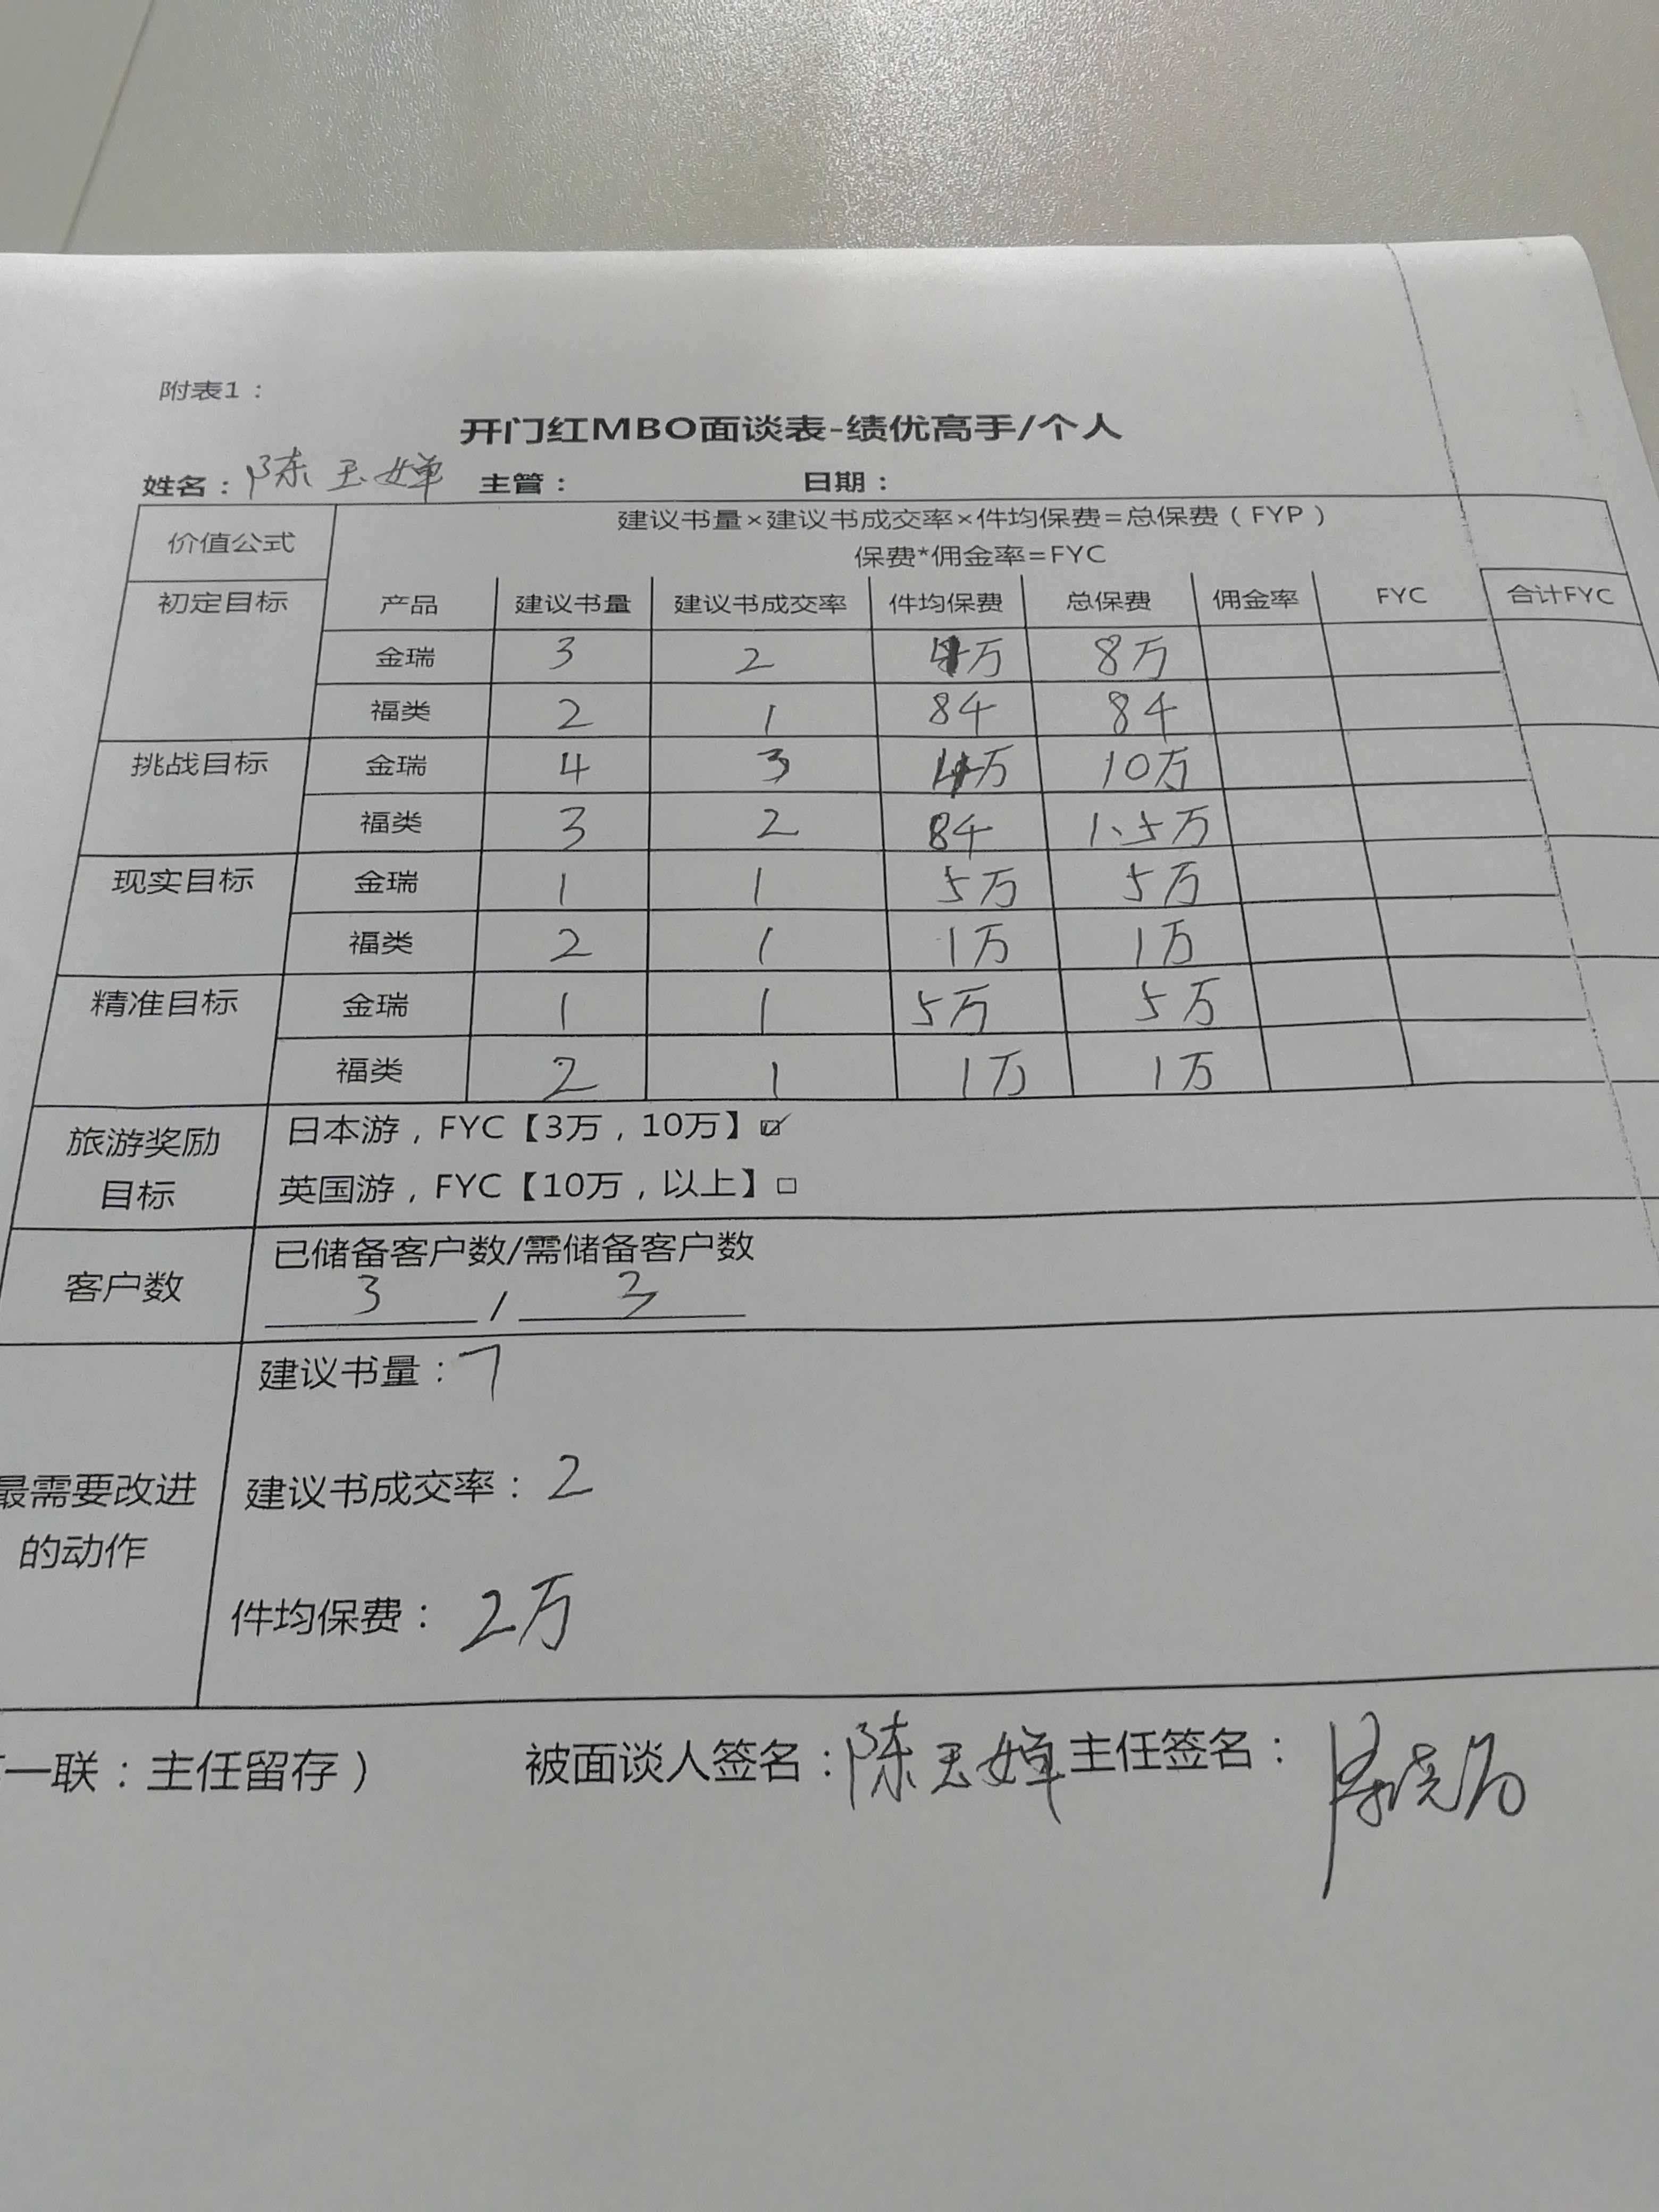 附表1：
开门红MBO面谈表-绩优高手/个人
姓名：陈玉婵 主管： 日期：
价值公式 建议书量×建议书成交率×件均保费=总保费（FYP）
保费*佣金率=FYC
初定目标 产品 建议书量 建议书成交率 件均保费 总保费 佣金率 FYC 合计FYC
金瑞 3 2 4万 8万
福类 2 1 8千 8千
挑战目标 金瑞 4 3 万 10万
福类 3 2 8千 1.5万
现实目标 金瑞 1 1 5万 5万
福类 2 1 1万 1万
精准目标 金瑞 1 1 5万 5万
福类 2 1 1万 1万
旅游奖励目标 日本游，FYC【3万，10万】☑
英国游，FYC【10万，以上】□
客户数 已储备客户数/需储备客户数
3 / 3
最需要改进的动作 建议书量：7
建议书成交率：2
件均保费：2万
一联：主任留存） 被面谈人签名：陈玉婵 主任签名：